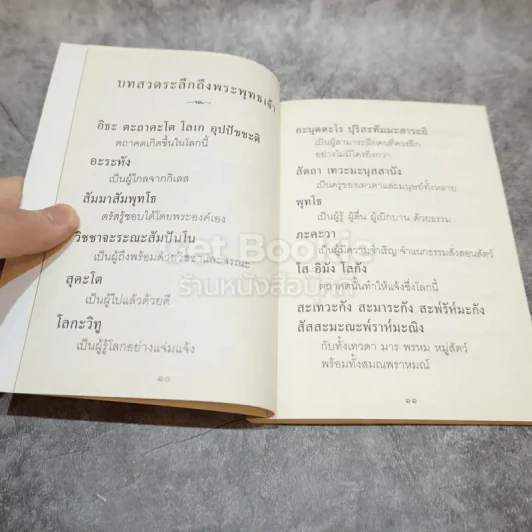 บทสวดระลึกถึงพระพุทธเจ้า
อิธะ ตะถาคะโต โลเก อุปปัชชะติ
ตถาคตเกิดขึ้นในโลกนี้
อะระหัง
เป็นผู้ไกลจากกิเลส
สัมมาสัมพุทโธ
ตรัสรู้ชอบได้โดยพระองค์เอง
วิชชาจะระณะสัมปันโน
เป็นผู้ถึงพร้อมด้วยวิชชาและจรณะ
สุคะโต
เป็นผู้ไปแล้วด้วยดี
โลกะวิทู
เป็นผู้รู้โลกอย่างแจ่มแจ้ง
๑๐
อะนุตตะโร ปุริสะทัมมะสาระถิ
เป็นผู้สามารถฝึกคนที่ควรฝึก
อย่างไม่มีใครยิ่งกว่า
สัตถา เทวะมะนุสสานัง
เป็นครูของเทวดาและมนุษย์ทั้งหลาย
พุทโธ
เป็นผู้รู้ ผู้ตื่น ผู้เบิกบาน ด้วยธรรม
ภะคะวา
เป็นผู้มีความจำเริญ จำแนกธรรมสั่งสอนสัตว์
โส อิมัง โลกัง
ตถาคตนั้นทำให้แจ้งซึ่งโลกนี้
สะเทวะกัง สะมาระกัง สะพรัหมะกัง
สัสสะมะณะพราหมะณิง
กับทั้งเทวดา มาร พรหม หมู่สัตว์
พร้อมทั้งสมณพราหมณ์
๑๑
Get Bookie
ร้านหนังสือ